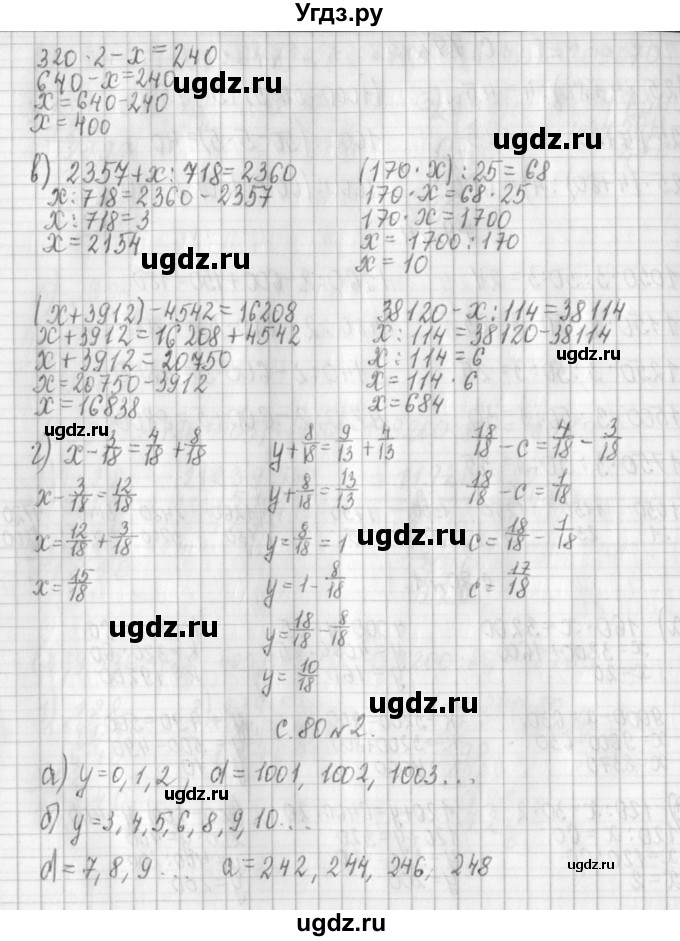 Угдз.ру
320 · 2 − x = 240
640 − x = 240
x = 640 − 240
x = 400
в) 2357 + x : 718 = 2360
x : 718 = 2360 − 2357
x : 718 = 3
x = 2154
(170 · x) : 25 = 68
170 · x = 68 · 25
170 · x = 1700
x = 1700 : 170
x = 10
(x + 3912) − 4542 = 16208
x + 3912 = 16208 + 4542
x + 3912 = 20750
x = 20750 − 3912
x = 16838
38120 − x : 114 = 38114
x : 114 = 38120 − 38114
x : 114 = 6
x = 114 · 6
x = 684
г) x − 3/18 = 4/18 + 8/18
x − 3/18 = 12/18
x = 12/18 + 3/18
x = 15/18
y + 8/18 = 9/13 + 4/13
y + 8/18 = 13/13
y = 8/18 = 1
y = 1 − 8/18
y = 18/18 − 8/18
y = 10/18
18/18 − c = 4/18 − 3/18
18/18 − c = 1/18
c = 18/18 − 1/18
c = 17/18
с. 80 №2.
а) y = 0, 1, 2, d = 1001, 1002, 1003...
б) y = 3, 4, 5, 6, 8, 9, 10...
d = 7, 8, 9... a = 242, 244, 246, 248
ugdz.ru
ugdz.ru
ugdz.ru
ugdz.ru
ugdz.ru
ugdz.ru
ugdz.ru
ugdz.ru
ugdz.ru
ugdz.ru
ugdz.ru